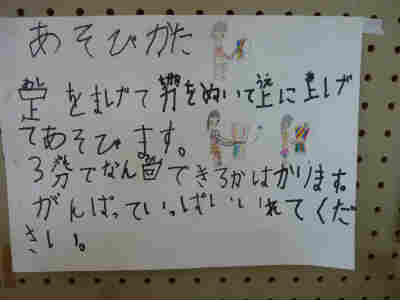 あそびかた
足をまげて をぬいて上に上げ
てあそびます。
3分でなん回できるかはかります。
がんばっていっぱいいれてくだ
さい。